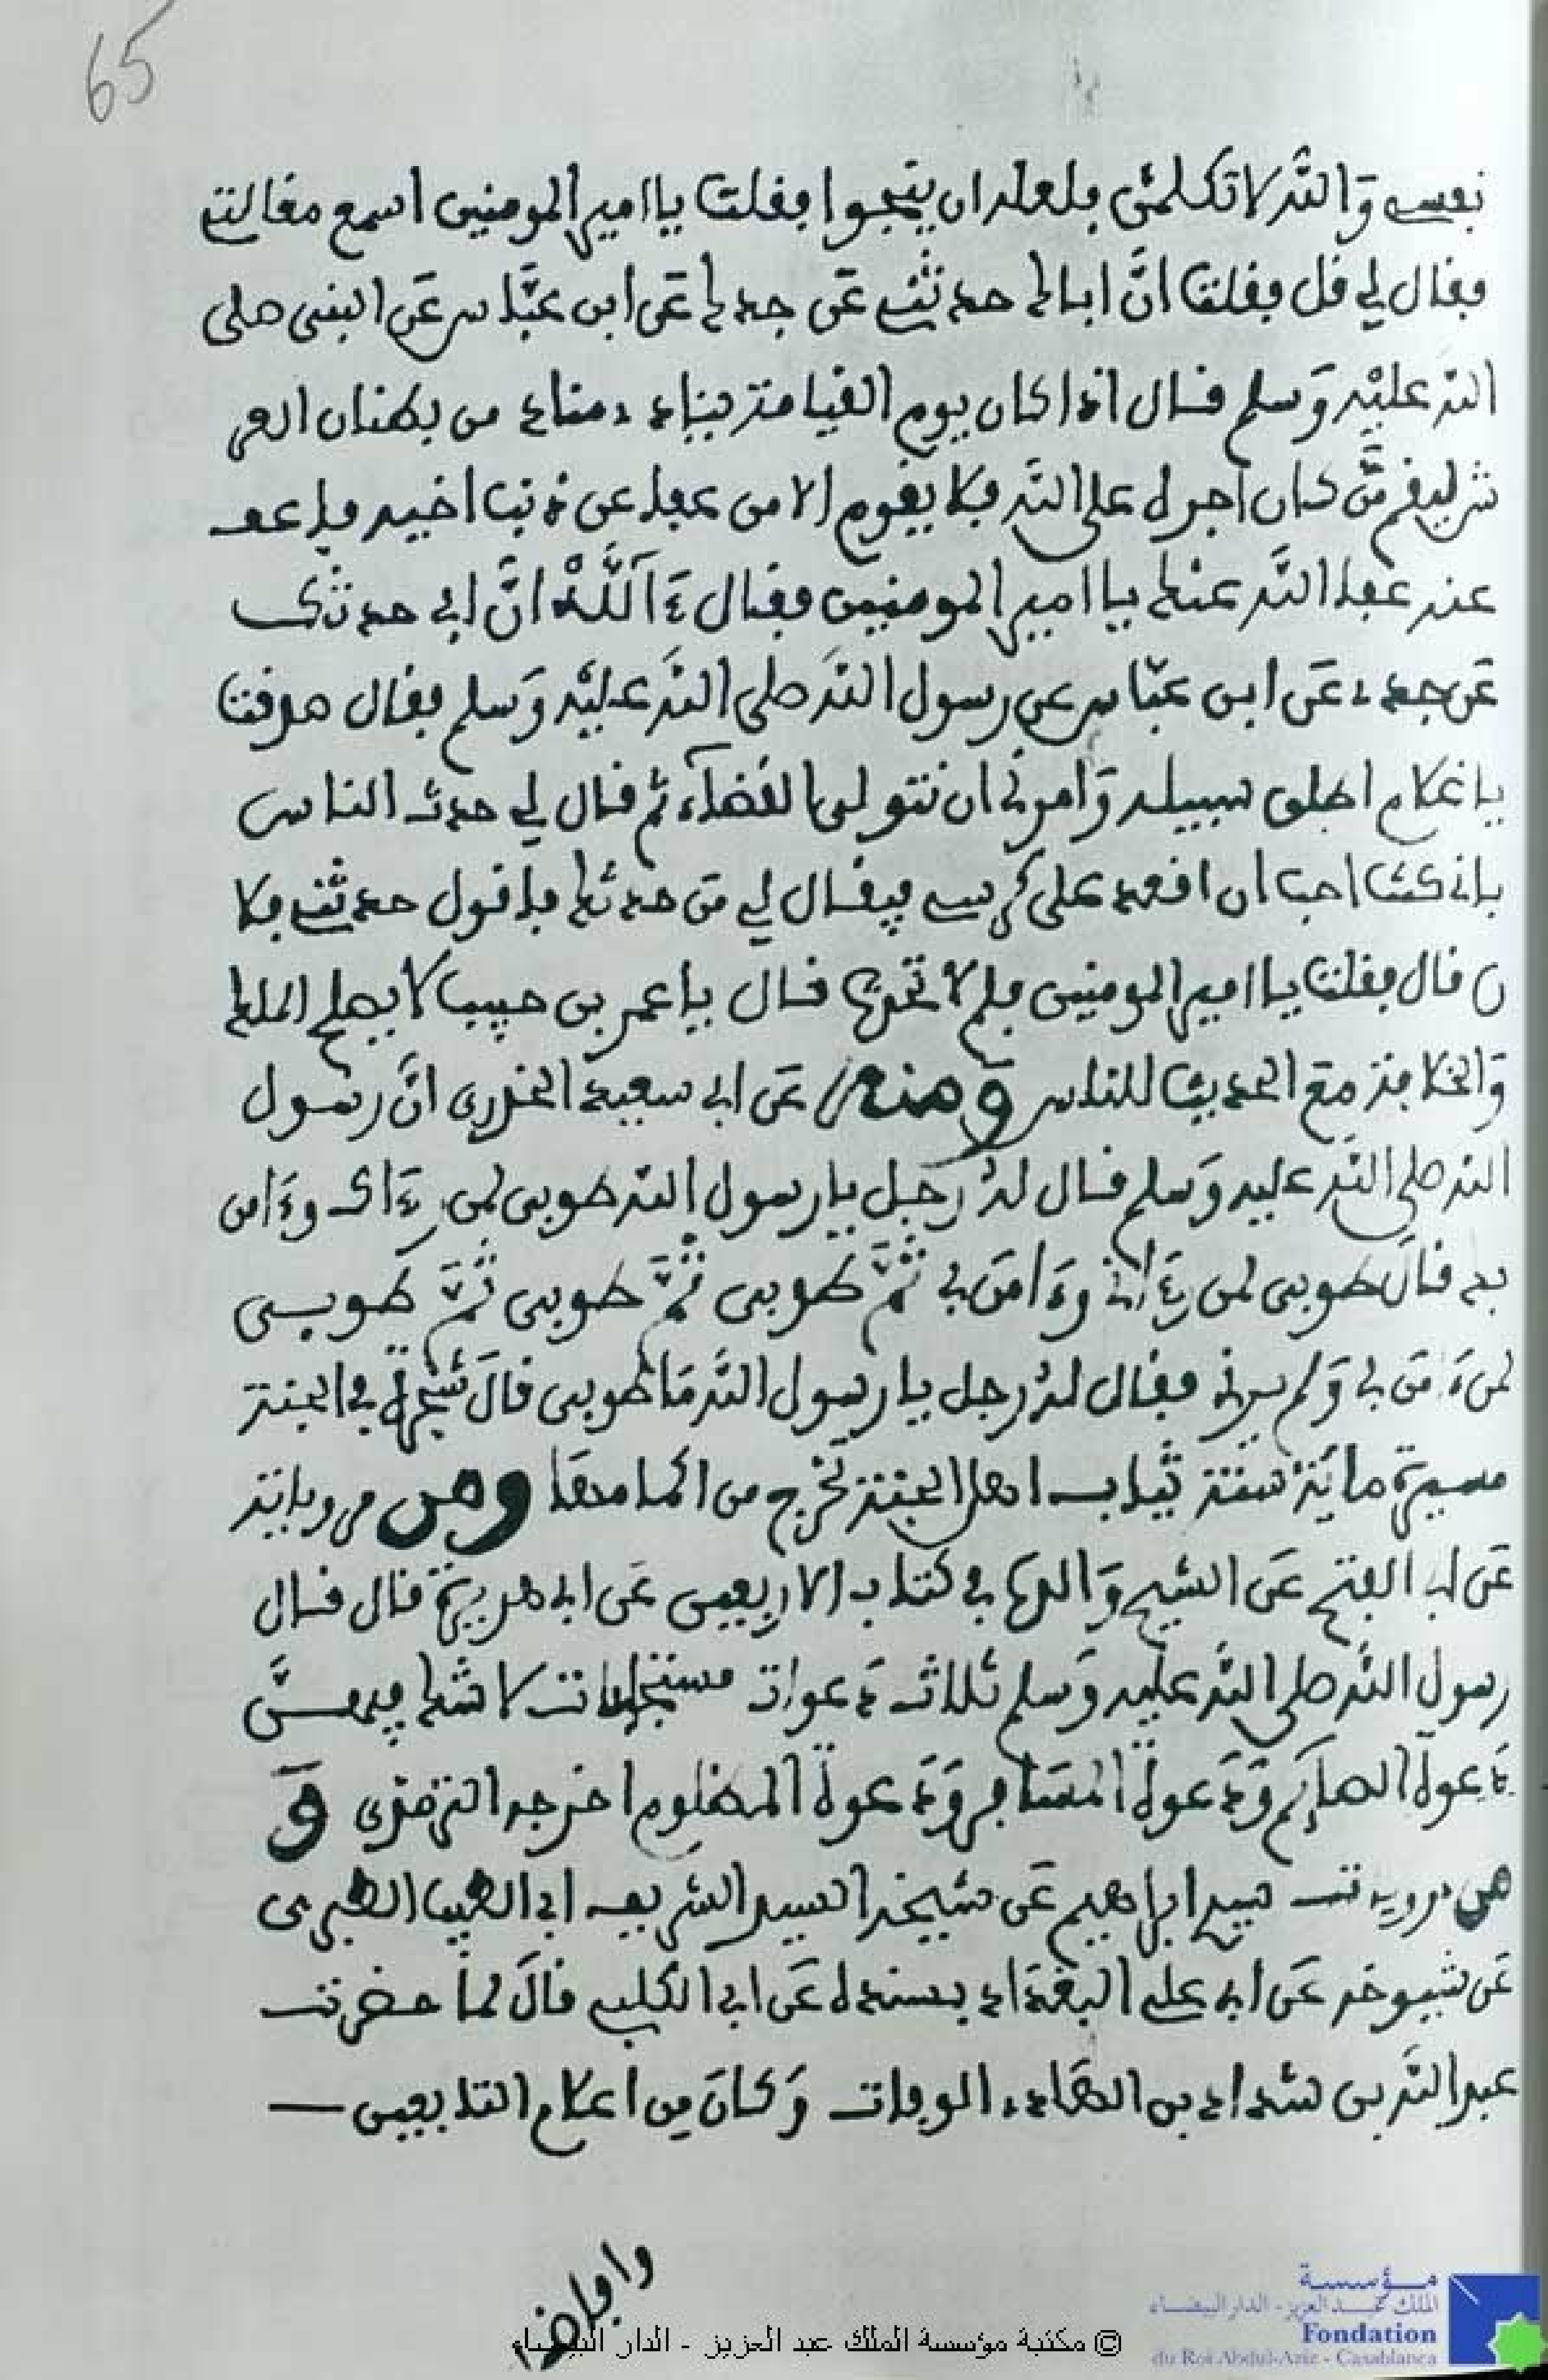 65
نفسي وَالله لاتكلمنّ فلعله ان ينجوا فقلت يا امير المومنين اسمع مقالتي
فقال لي قل فقلت انَّ اباك حدثني عَن جدك عَن ابن عبَّاس عَن النبي صلى
الله عليْه وَسلم قال اذا كان يوم القيامة ينادي مناد من بطنان العر
ش ليقم مَّن كان اجره على الله فلا يقوم الا من عفا عن ذنب اخيه فاعف
عنه عفا الله عنك يا امير المومنين فقال ءَاللَّهْ انَّ ابي حدثك
عَن جدي عَن ابن عبّاس عن رسول الله صلى الله عليْه وَسلم فقال صدقت
يا غلام اطلق سبيله وَامرني ان نتولى القضآء ثم قال لي حدث الناس
فاني كنت احب ان اقعد على كرسي فيقال لي مَن حدثك فاقول حدثني فلا
ن قال فقلت يا امير المومنين فلم لا تحدثها قال يا عمر بن حبيب لا يصلح الملك
وَالخلافة مع الحديث للناس وَمنه عَن ابي سعيد الخدري انَّ رسول
الله صلى الله عليه وَسلم قال لهُ رجل يا رسول الله طوبى لمن رءَاك وءَامن
بك قالَ طوبى لمن رءَاني وءَامَن بي ثُمَّ طوبى ثُمَّ طوبى ثُمَّ طوبى
لمن ءَامَن بي وَلم يرني فقال لهُ رجل يا رسول الله مَا طوبى قالَ شجرة في الجنة
مسيرة مائة سنة ثياب اهل الجنة تخرج من اكمامها ومن مروياته
عَن ابي الفتح عَن الشيخ وَالدها في كتاب الاربعين عَن ابي هريرة قال قال
رسول الله صلى الله عليه وَسلم ثلاث دَعوات مستجابات لا شك فيهنَّ
دَعوة الصايم وَدَعوة المسافر وَدَعوة المظلوم اخرجه الترمذي وَ
من مروياته سيد ابراهيم عَن شيخه السيد الشريف ابي الطيب الطبري
عَن شيوخه عَن ابي علي البغدادي بسنده عَن ابي الكلبي قالَ لما حضرت
عبد الله بن شداد بن الهَاد الوفات وَكانَ مِن اعلام التابعين
وافاض
© مكتبة مؤسسة الملك عبد العزيز - الدار البيضاء
مؤسسة
الملك عبد العزيز - الدار البيضاء
Fondation
du Roi Abdul-Aziz - Casablanca